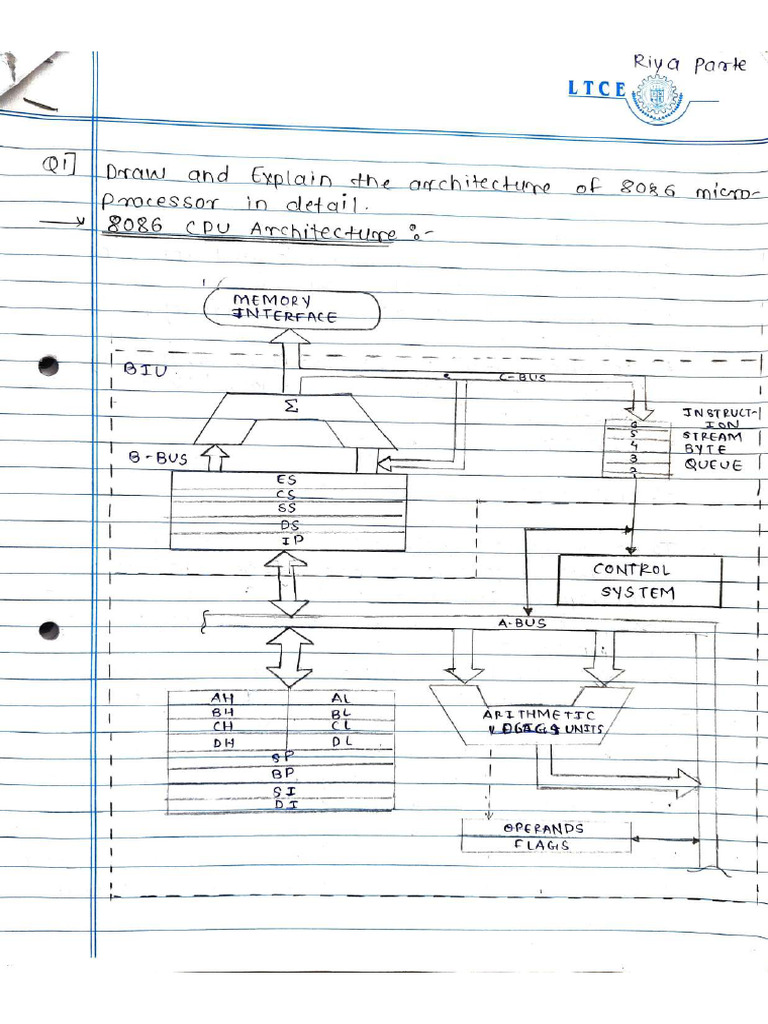 Riya Parte
LTCE
Q1] Draw and Explain the architecture of 8086 micro-
processor in detail.
→ 8086 CPU Architecture :-
MEMORY
INTERFACE
BIU
C-BUS
Σ
INSTRUCT-
ION
STREAM
BYTE
QUEUE
6
5
4
3
2
B-BUS
ES
CS
SS
DS
IP
CONTROL
SYSTEM
A-BUS
AH AL
BH BL
CH CL
DH DL
SP
BP
SI
DI
ARITHMETIC
UNITS
OPERANDS
FLAGS